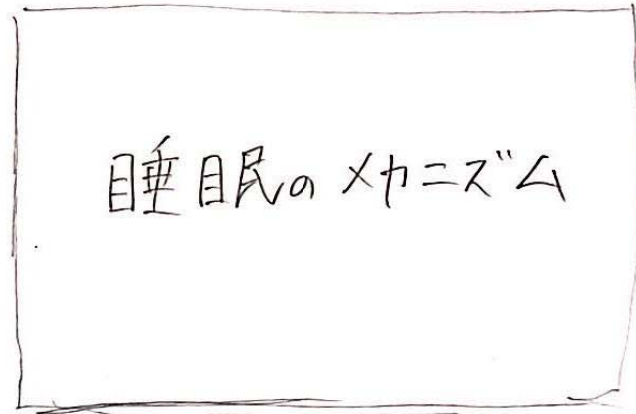 睡眠のメカニズム